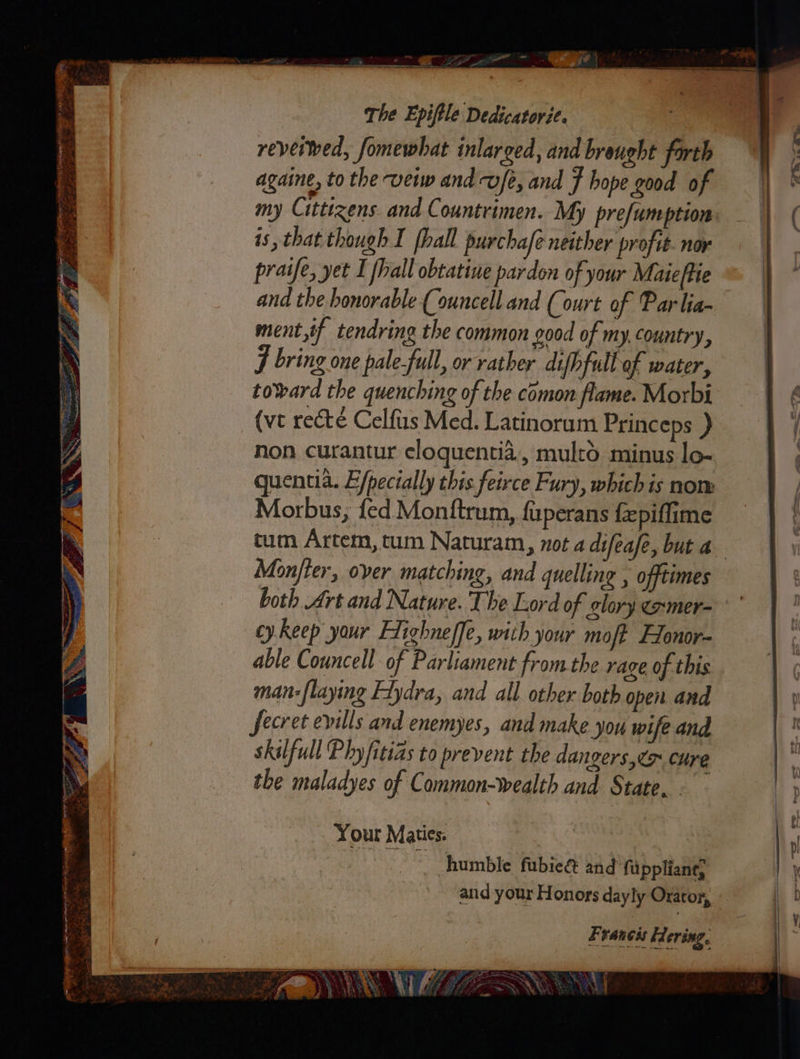 The Epiſtle Dedicatorie.
reveiwed, ſomewhat inlarged, and brought forth
againe, to the veiw and vſe, and I hope good of
my Cittizens and Countrimen. My preſumption
is, that though I ſhall purchaſe neither profit nor
praiſe, yet I ſhall obtatiue pardon of your Maieſtie
and the honorable Councell and Court of Parlia-
ment, if tendring the common good of my country,
I bring one pale-full, or rather diſhfull of water,
toward the quenching of the cōmon flame. Morbi
(vt recté Celſus Med. Latinorum Princeps )
non curantur eloquentiâ, multò minus lo-
quentiâ. Eſpecially this feirce Fury, which is now
Morbus, ſed Monſtrum, ſuperans ſæpiſſime
tum Artem, tum Naturam, not a diſeaſe, but a
Monſter, over matching, and quelling, offtimes
both Art and Nature. The Lord of glory & mer-
cy keep your Highneſſe, with your moſt Honor-
able Councell of Parliament from the rage of this
man-ſlaying Hydra, and all other both open and
ſecret evills and enemyes, and make you wiſe and
skilfull Phyſitiās to prevent the dangers, & cure
the maladyes of Common-wealth and State.
Your Maties.
humble ſubiect and ſuppliant,
and your Honors dayly Orator,
Francis Hering.